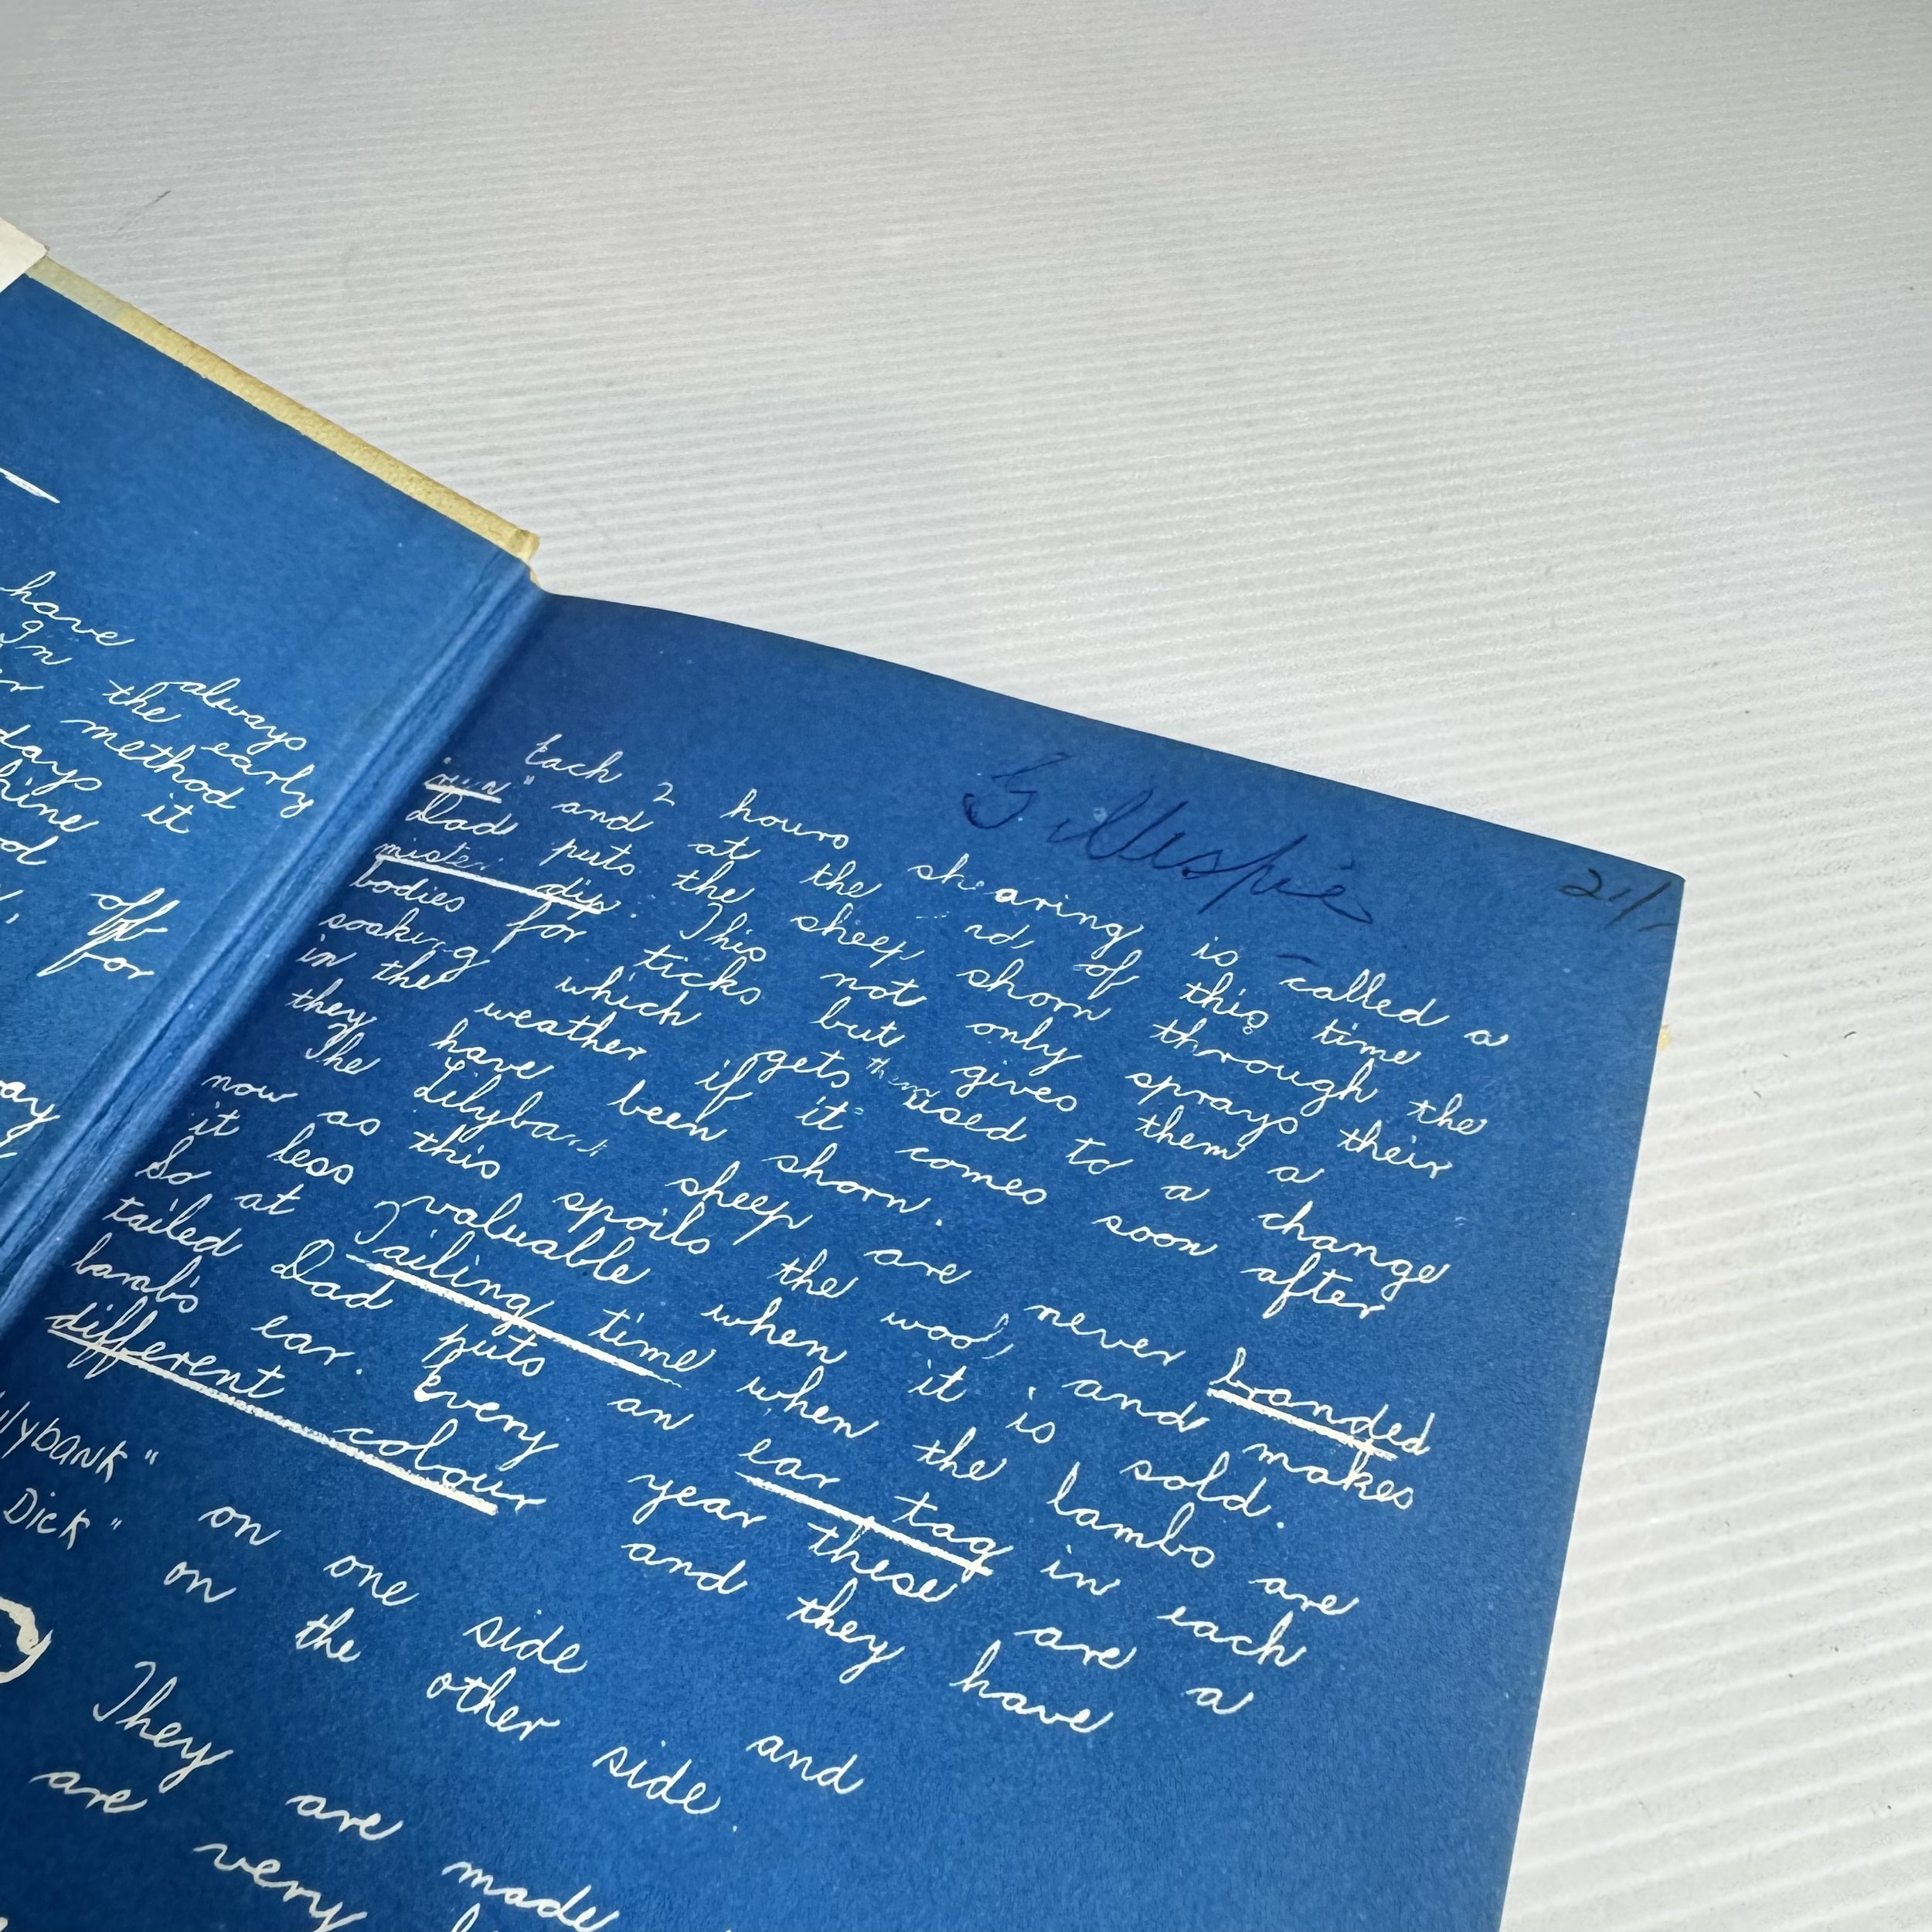 have always
In the early
method
days it
hine
off
for
Gillespie
21/
Each 2 hours shearing is called a
"run" and at the end of this time
Dad puts the sheep shorn through the
mister dip. This not only sprays their
bodies for ticks but gives them a
soaking which gets them used to a change
in the weather if it comes soon after
they have been shorn.
The Lilybank sheep are never branded
now as this spoils the wool, and makes
it less valuable when it is sold.
So at Tailing time when the lambs are
tailed Dad puts an ear tag in each
lamb's ear. Every year these are a
different colour and they have
on one side and
Dick" on the other side.
They are made
are very